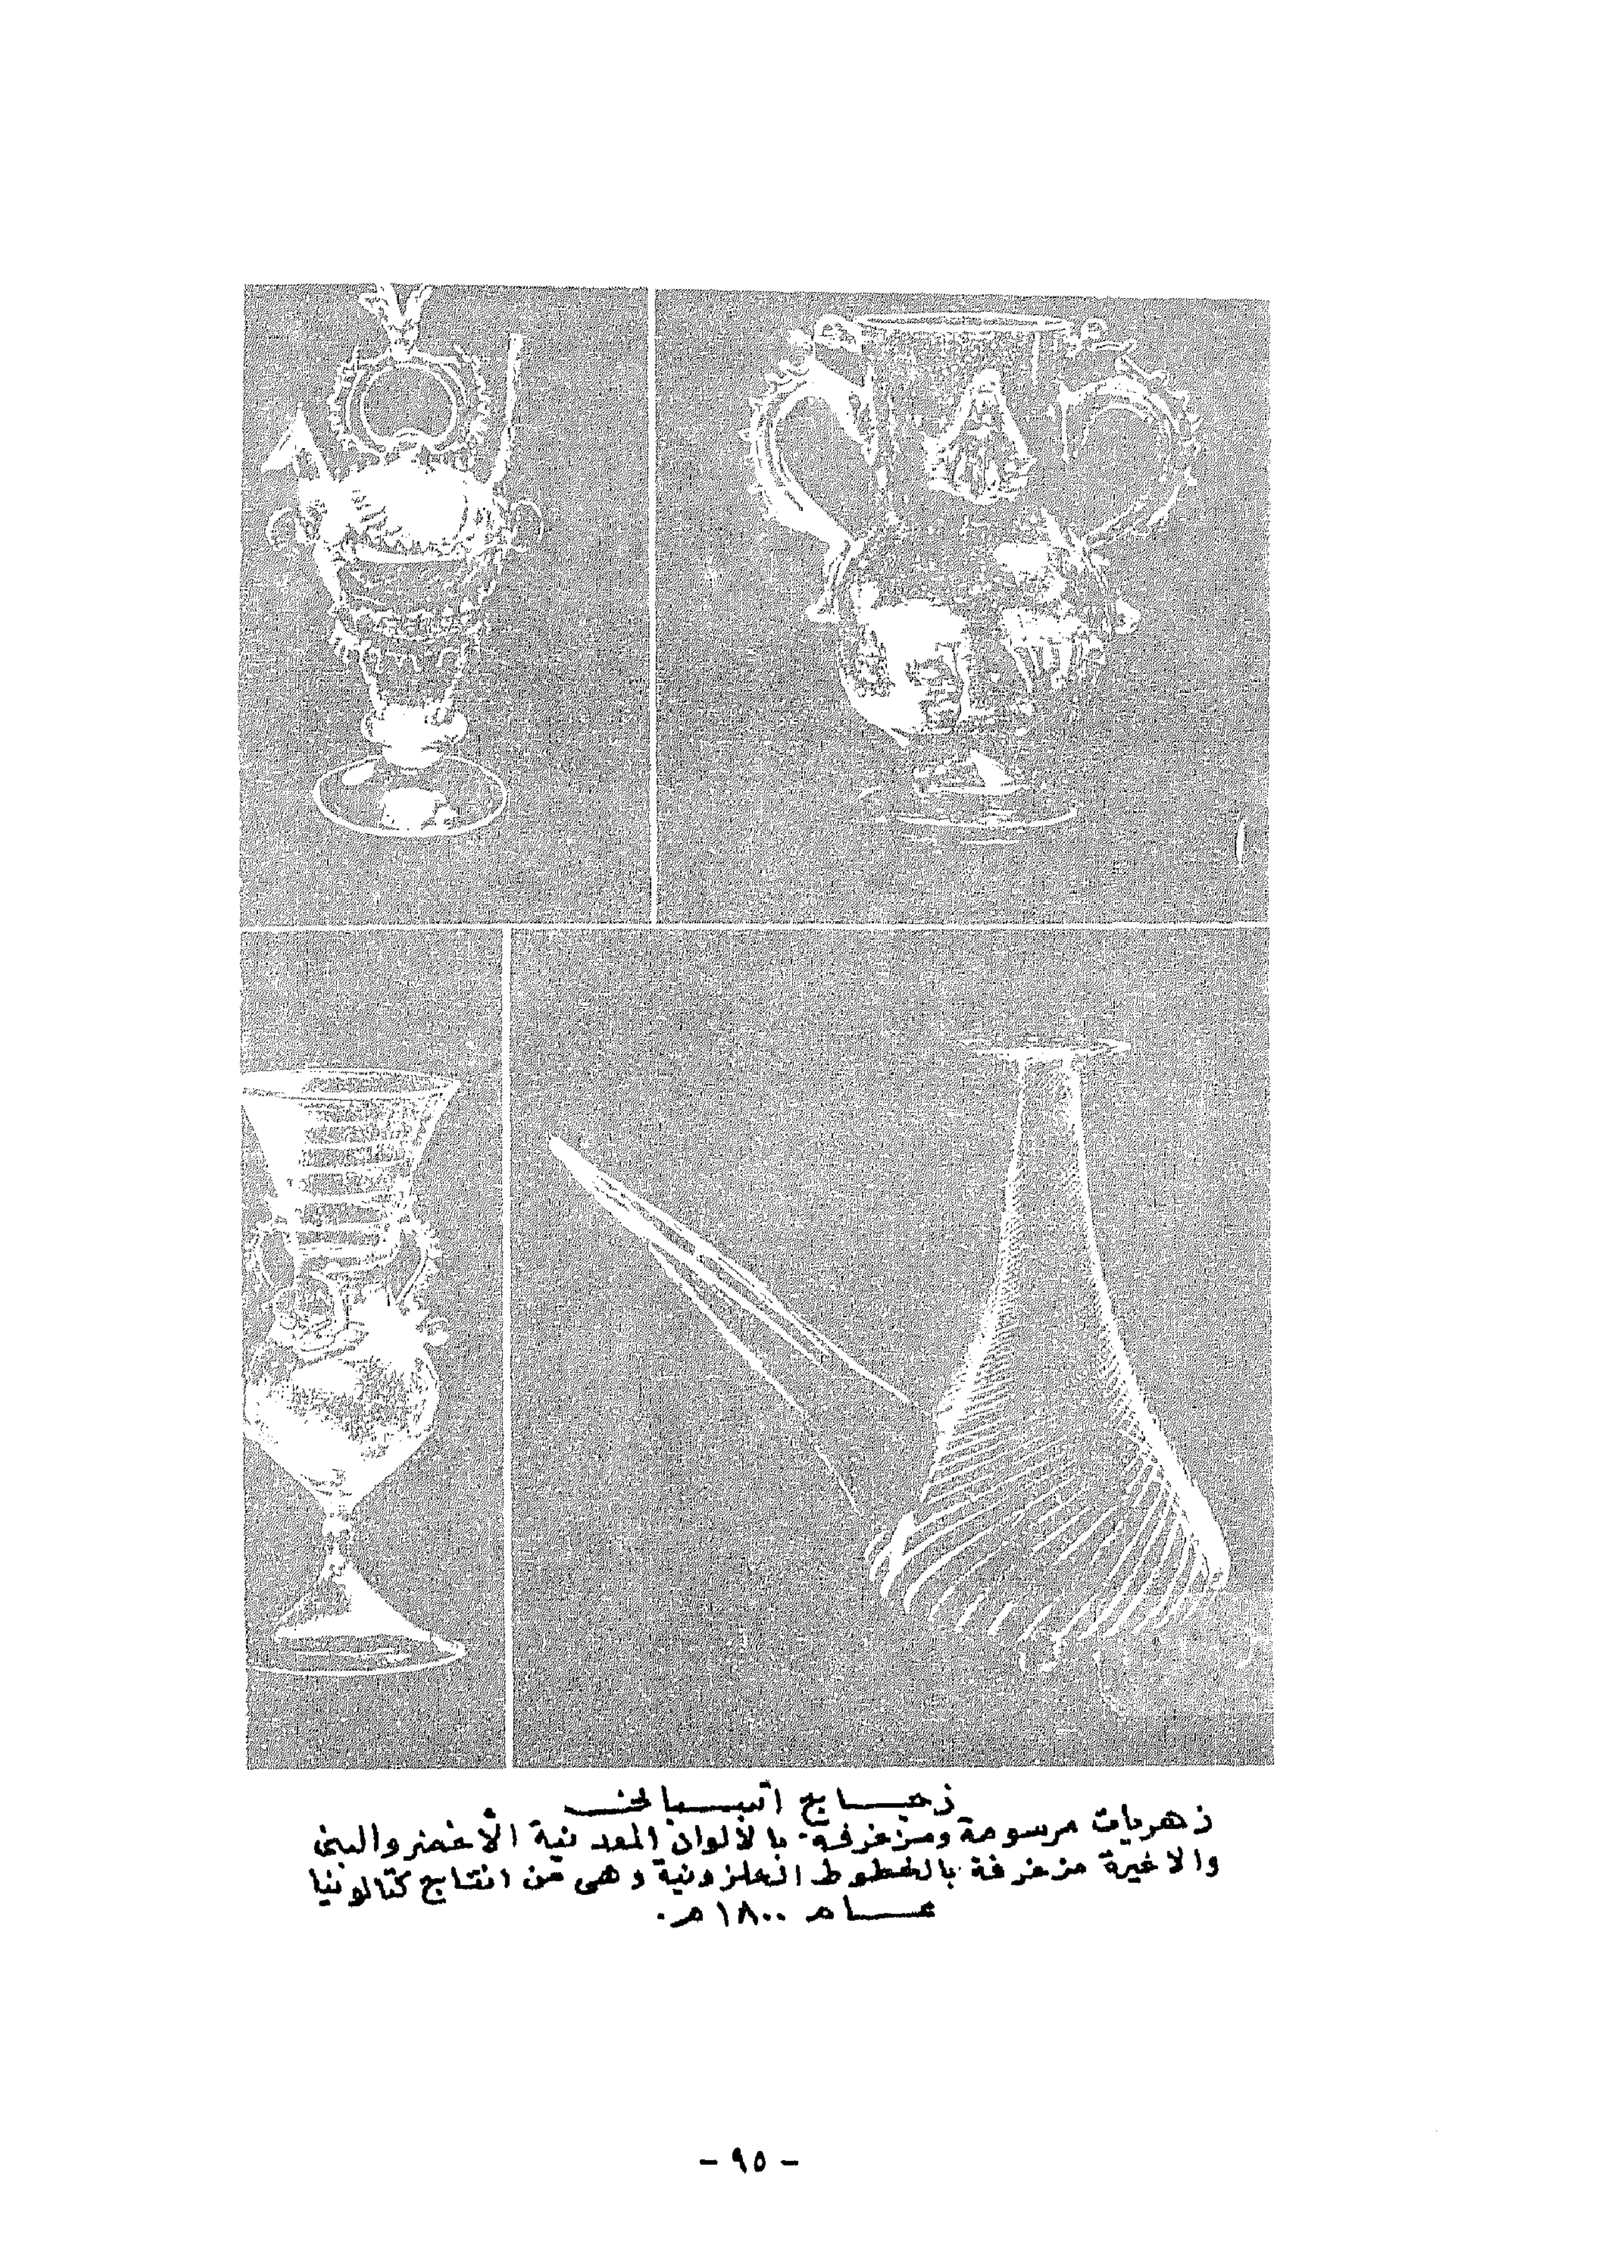 زجاج اسباني
زهريات مرسومة ومزخرفة. بالألوان المعدنية الأخضر والبني
والاخيرة مزخرفة بالخطوط الحلزونية وهي من انتاج كتالونيا
عام ١٨٠٠م.
- ٩٥ -